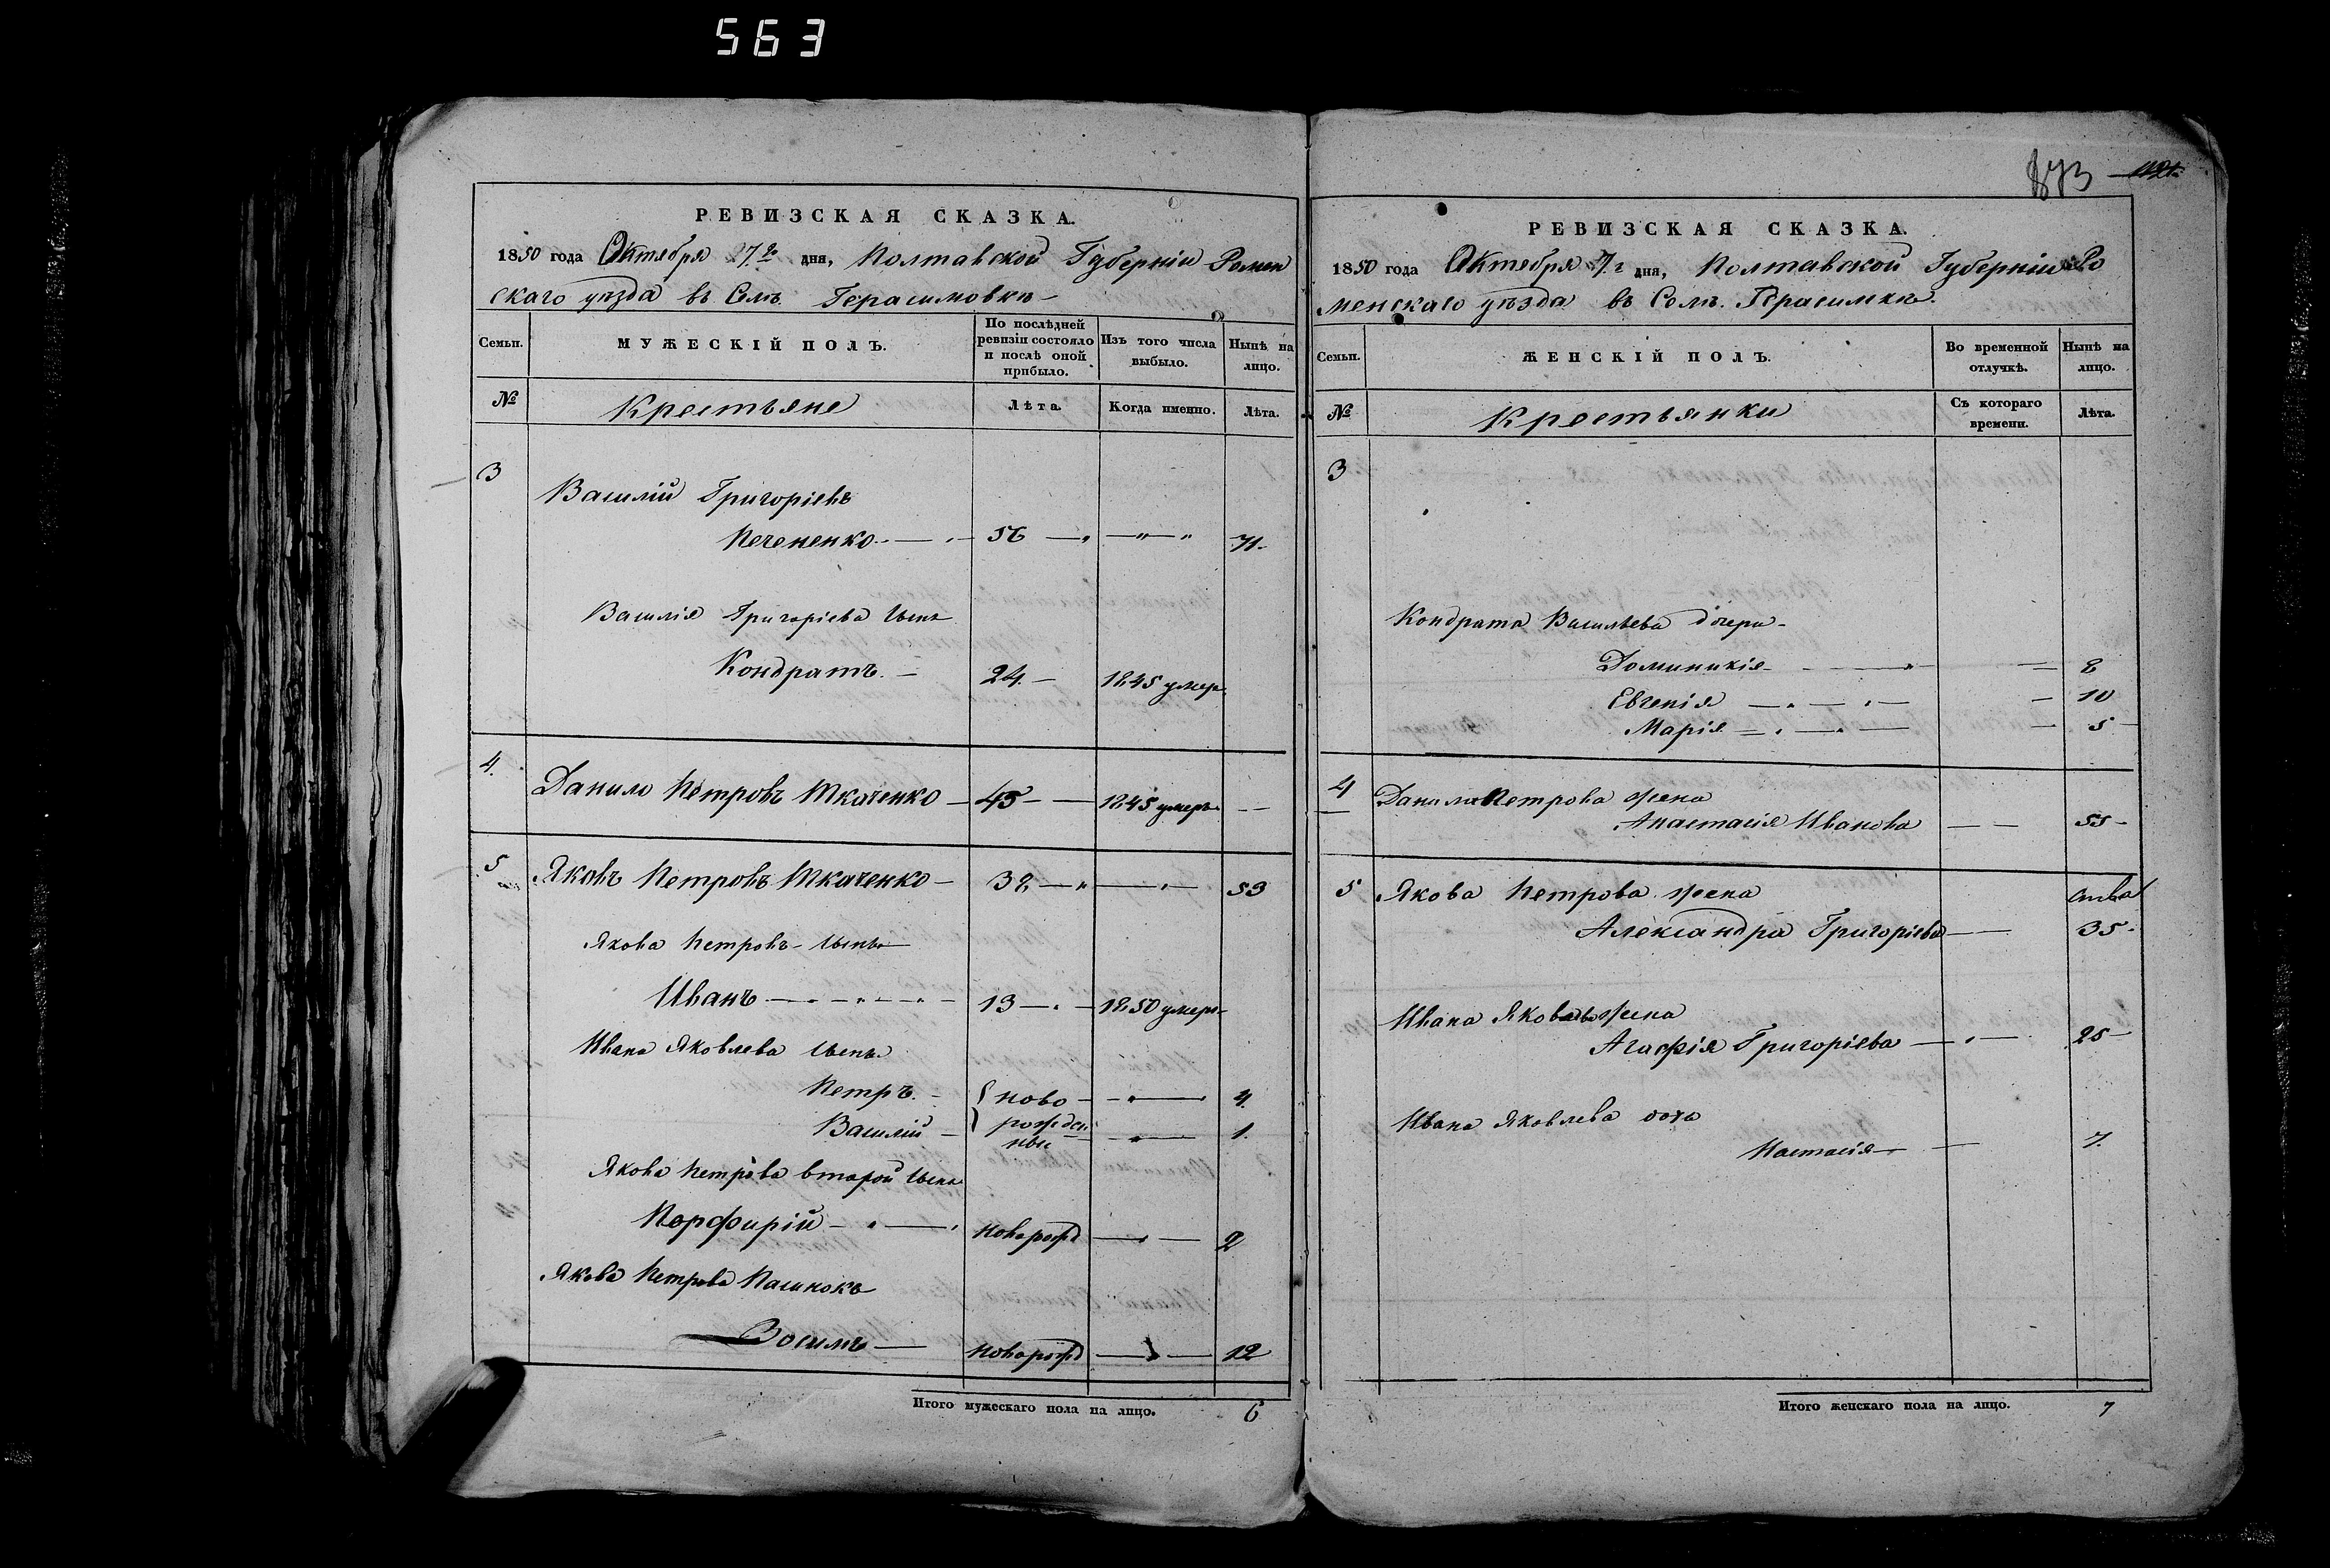 563
РЕВИЗСКАЯ СКАЗКА.
1850 года Октября 27.го дня, Полтавской Губерніи Ромен
скаго уѣзда въ Селѣ Герасимовкѣ
Семьи.
МУЖЕСКІЙ ПОЛЪ.
По послѣдней ревизіи состояло и послѣ оной прибыло.
Изъ того числа выбыло.
Нынѣ на лицо.
№
Крестьяне
Лѣта.
Когда именно.
Лѣта.
3
Василій Григоріевъ
Печененко 56 71.
Василія Григоріева сынъ
Кондратъ. 24. 1845 умер.
4.
Данило Петровъ Ткаченко 45 1845 умеръ
5
Яковъ Петровъ Ткаченко 38 53
Якова Петровъ сынъ
Иванъ 13 1850 умеръ
Ивана Яковлева сынъ.
Петръ. ново 4.
Василій рожден 1.
ные
Якова Петрова второй сынъ
Порфирій новорожд 2
Якова Петрова Пасинокъ
Зосимъ новорожд 12
Итого мужескаго пола на лицо. 6
873
РЕВИЗСКАЯ СКАЗКА.
1850 года Октября 27.г дня, Полтавской Губерніи Ро
менскаго уѣзда въ Селѣ. Герасимкѣ.
Семьи.
ЖЕНСКІЙ ПОЛЪ.
Во временной отлучкѣ.
Нынѣ на лицо.
№
Крестьянки
Съ котораго времени.
Лѣта.
3
Кондрата Васильева дочери
Доминикія 8
Евгенія 10
Марія 5
4
Данила Петрова жена
Анастасія Иванова 55
5
Якова Петрова жена
Александра Григоріева 35
Ивана Яковлева жена
Агафія Григоріева 25
Ивана Яковлева доха
Настасія 7.
Итого женскаго пола на лицо. 7